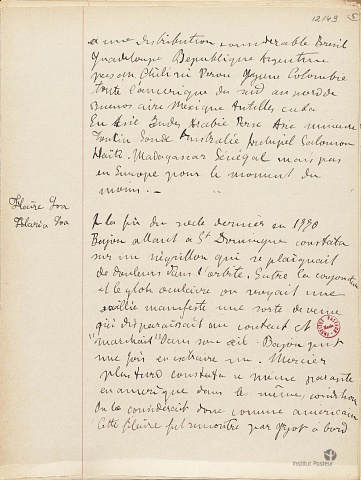 12149 5
a une distribution considérable Brésil
Guadeloupe République Argentine
pas en Chili ni Pérou Guyane Colombie
toute l'amerique du sud au nord de
Buenos aire Mexique Antilles cuba
En Asie Indes Arabie Perse Asie mineure
Tonkin Sonde Australie Archipel Salomon
Haïti. Madagascar Sénégal mais pas
en Europe pour le moment du
moins. —
Filaire Loa
Filaria Loa
A la fin du siecle dernier en 1770
Bajon allant a St Domingue constata
sur un négrillon qui se plaignait
de douleurs dans l'orbite. Entre la conjonctive
et le globe oculaire on voyait une
saillie manifeste une sorte de veine
qui disparaissait au contact et
"marchait" dans son œil. Bajon put
une fois en extraire un. Mercier
plus tard constata le même parasite
en amérique dans les même condition
On la considérait donc comme americaine
Cette filaire fut rencontrée par Guyot a bord
Institut Pasteur